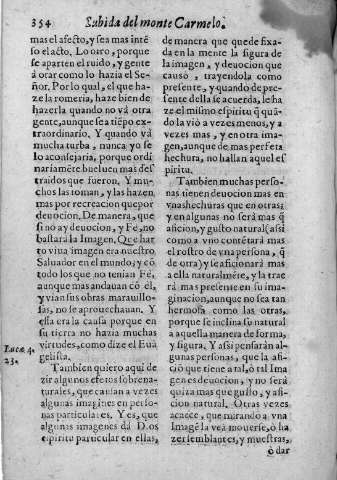 354 Subida del monte Carmelo.
mas el afecto, y sea mas intē
so el acto. Lo otro, porque
se aparten el ruido, y gente
á orar como lo hazia el Se-
ñor. Por lo qual, el que ha-
ze la romeria, haze bien de
hazerla quando no vá otra
gente, aunque sea tiēpo ex-
traordinario. Y quando vá
mucha turba, nunca yo se
lo aconsejaria, porque ordi
nariamēte bueluen mas des
traidos que fueron. Y mu-
chos las toman, y las hazen
mas por recreacion que por
deuocion. De manera, que
si no ay deuocion, y Fé, no
bastará la Imagen. Que har
to viua imagen era nuestro
Saluador en el mundo; y cō
todo los que no tenian Fé,
aunque mas andauan cō él,
y vian sus obras marauillo-
sas, no se aprouechauan. Y
essa era la causa porque en
su tierra no hazia muchas
virtudes, como dize el Eua
gelista.
Lucæ 4.
23.
Tambien quiero aqui de
zir algunos efetos sobrena-
turales, que causan a vezes
algunas imagines en perso-
nas particulares. Y es, que
algunas imagenes dá Dios
espiritu particular en ellas,
de manera que quede fixa-
da en la mente la figura de
la imagen, y deuocion que
causó, trayendola como
presente, y quando de pre-
sente della se acuerda, le ha
ze el mismo espiritu q̄ quā-
do la vió a vezes menos, y a
vezes mas, y en otra ima-
gen, aunque de mas perfeta
hechura, no hallan aquel es
piritu.
Tambien muchas perso-
nas tienen deuocion mas en
vnas hechuras que en otras;
y en algunas no será mas q̄
aficion, y gusto natural (assi
como a vno contētará mas
el rostro de vna persona, q̄
de otra) y se aficionará mas
a ella naturalmēte, y la trae
rá mas presente en su ima-
ginacion, aunque no sea tan
hermosa como las otras,
porque se inclina su natural
a aquella manera de forma,
y figura. Y assi pensarán al-
gunas personas, que la afi-
ció que tiene a tal, ò tal Ima
gen es deuocion, y no será
quiza mas que gusto, y afi-
cion natural. Otras vezes
acaece, que mirando a vna
Imagē la veá mouerse, ò ha
zer semblantes, y muestras,
ò dar